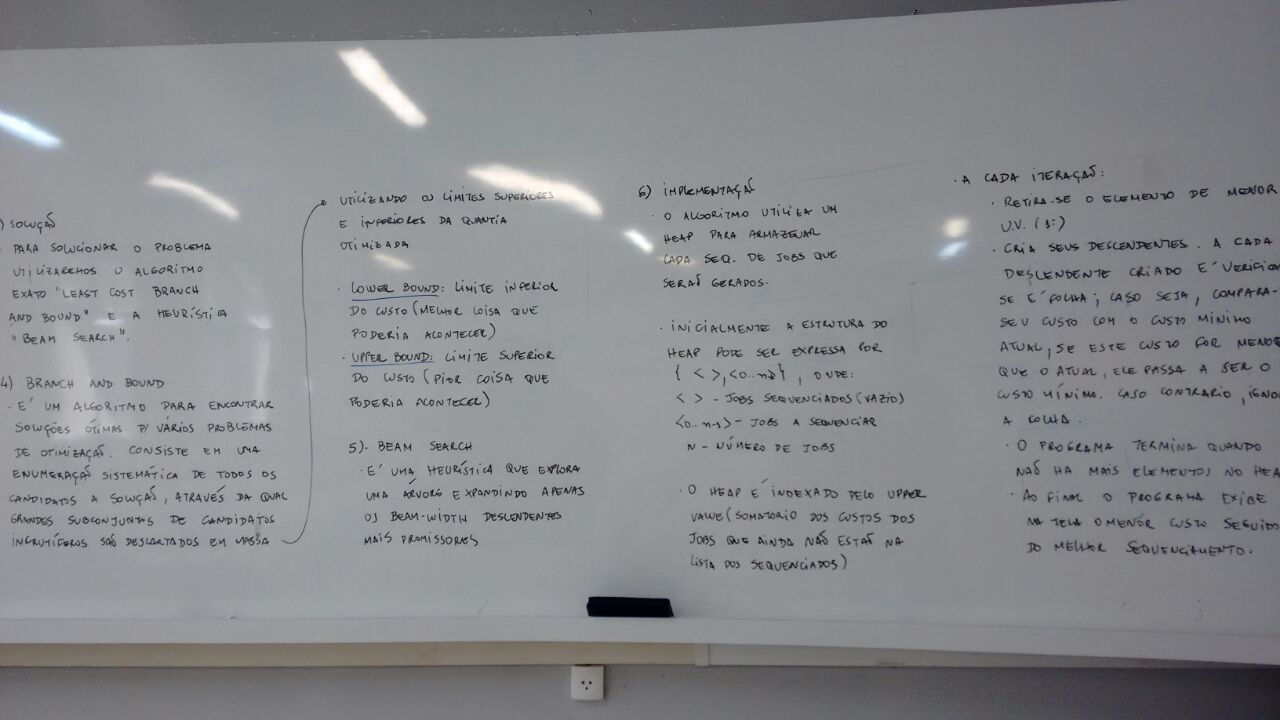 ) SOLUÇÃO
· PARA SOLUCIONAR O PROBLEMA
UTILIZAREMOS O ALGORITMO
EXATO "LEAST COST BRANCH
AND BOUND" E A HEURÍSTICA
"BEAM SEARCH".
4) BRANCH AND BOUND
· E' UM ALGORITMO PARA ENCONTRAR
SOLUÇÕES ÓTIMAS P/ VÁRIOS PROBLEMAS
DE OTIMIZAÇÃO. CONSISTE EM UMA
ENUMERAÇÃO SISTEMÁTICA DE TODOS OS
CANDIDATOS A SOLUÇÃO, ATRAVÉS DA QUAL
GRANDES SUBCONJUNTOS DE CANDIDATOS
INFRUTÍFEROS SÃO DESCARTADOS EM MASSA
UTILIZANDO OS LIMITES SUPERIORES
E INFERIORES DA QUANTIA
OTIMIZADA
· LOWER BOUND: LIMITE INFERIOR
DO CUSTO (MELHOR COISA QUE
PODERIA ACONTECER)
· UPPER BOUND: LIMITE SUPERIOR
DO CUSTO (PIOR COISA QUE
PODERIA ACONTECER)
5). BEAM SEARCH
· E' UMA HEURÍSTICA QUE EXPLORA
UMA ÁRVORE EXPANDINDO APENAS
OS BEAM-WIDTH DESCENDENTES
MAIS PROMISSORES
6) IMPLEMENTAÇÃO
· O ALGORITMO UTILIZA UM
HEAP PARA ARMAZENAR
CADA SEQ. DE JOBS QUE
SERÃO GERADOS.
· INICIALMENTE A ESTRUTURA DO
HEAP PODE SER EXPRESSA POR
{ < >, <0..n-1> }, ONDE:
< > - JOBS SEQUENCIADOS (VAZIO)
<0..n-1> - JOBS A SEQUENCIAR
N - NÚMERO DE JOBS
· O HEAP E' INDEXADO PELO UPPER
VALUE (SOMATORIO DOS CUSTOS DOS
JOBS QUE AINDA NÃO ESTÃO NA
LISTA DOS SEQUENCIADOS)
· A CADA ITERAÇÃO:
· RETIRA-SE O ELEMENTO DE MENOR
U.V. (1:)
· CRIA SEUS DESCENDENTES. A CADA
DESCENDENTE CRIADO E' VERIFICA
SE E' FOLHA; CASO SEJA, COMPARA-
SEU CUSTO COM O CUSTO MÍNIMO
ATUAL, SE ESTE CUSTO FOR MENOR
QUE O ATUAL, ELE PASSA A SER O
CUSTO MÍNIMO. CASO CONTRARIO, IGNO
A FOLHA.
· O PROGRAMA TERMINA QUANDO
NÃO HA MAIS ELEMENTOS NO HEA
· AO FINAL O PROGRAMA EXIBE
NA TELA O MENOR CUSTO SEGUIDO
DO MELHOR SEQUENCIAMENTO.